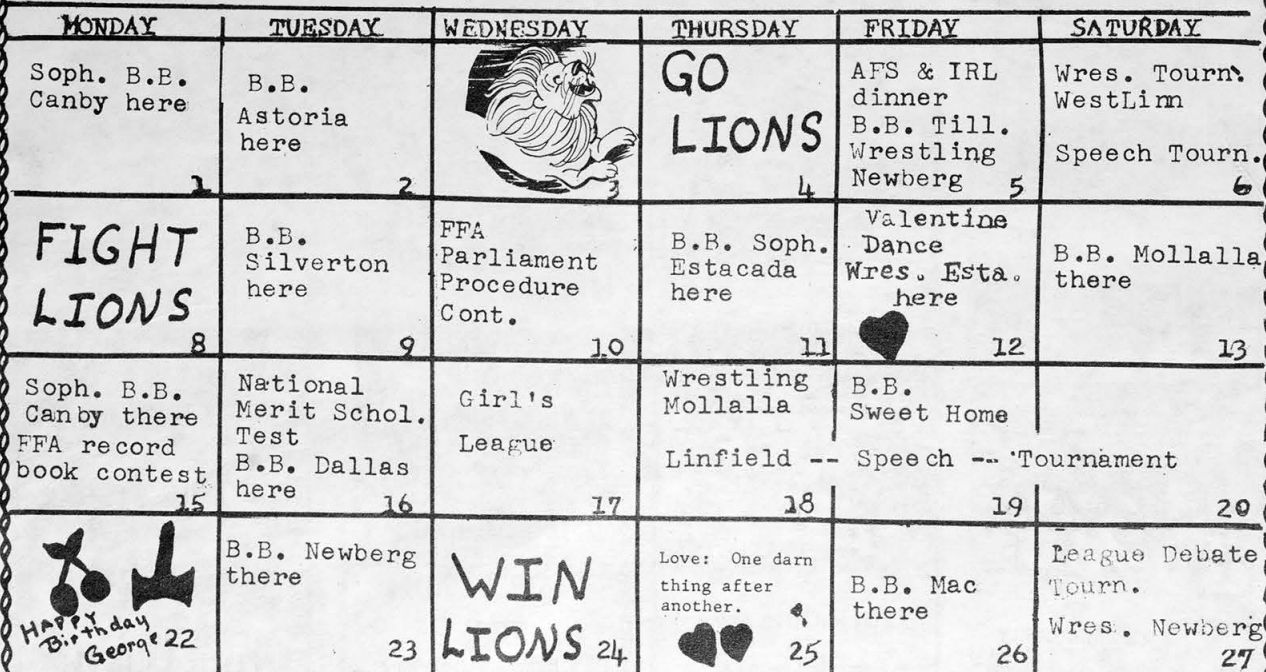 MONDAY TUESDAY WEDNESDAY THURSDAY FRIDAY SATURDAY
Soph. B.B.
Canby here
1
B.B.
Astoria
here
2
3
GO
LIONS
4
AFS & IRL
dinner
B.B. Till.
Wrestling
Newberg 5
Wres. Tourn.
WestLinn
Speech Tourn.
6
FIGHT
LIONS
8
B.B.
Silverton
here
9
FFA
Parliament
Procedure
Cont.
10
B.B. Soph.
Estacada
here
11
Valentine
Dance
Wres. Esta.
here
12
B.B. Mollalla
there
13
Soph. B.B.
Canby there
FFA record
book contest
15
National
Merit Schol.
Test
B.B. Dallas
here
16
Girl's
League
17
Wrestling
Mollalla
B.B.
Sweet Home
Linfield -- Speech -- Tournament
18 19 20
HAPPY
Birthday
George 22
B.B. Newberg
there
23
WIN
LIONS 24
Love: One darn
thing after
another.
25
B.B. Mac
there
26
League Debate
Tourn.
Wres. Newberg
27